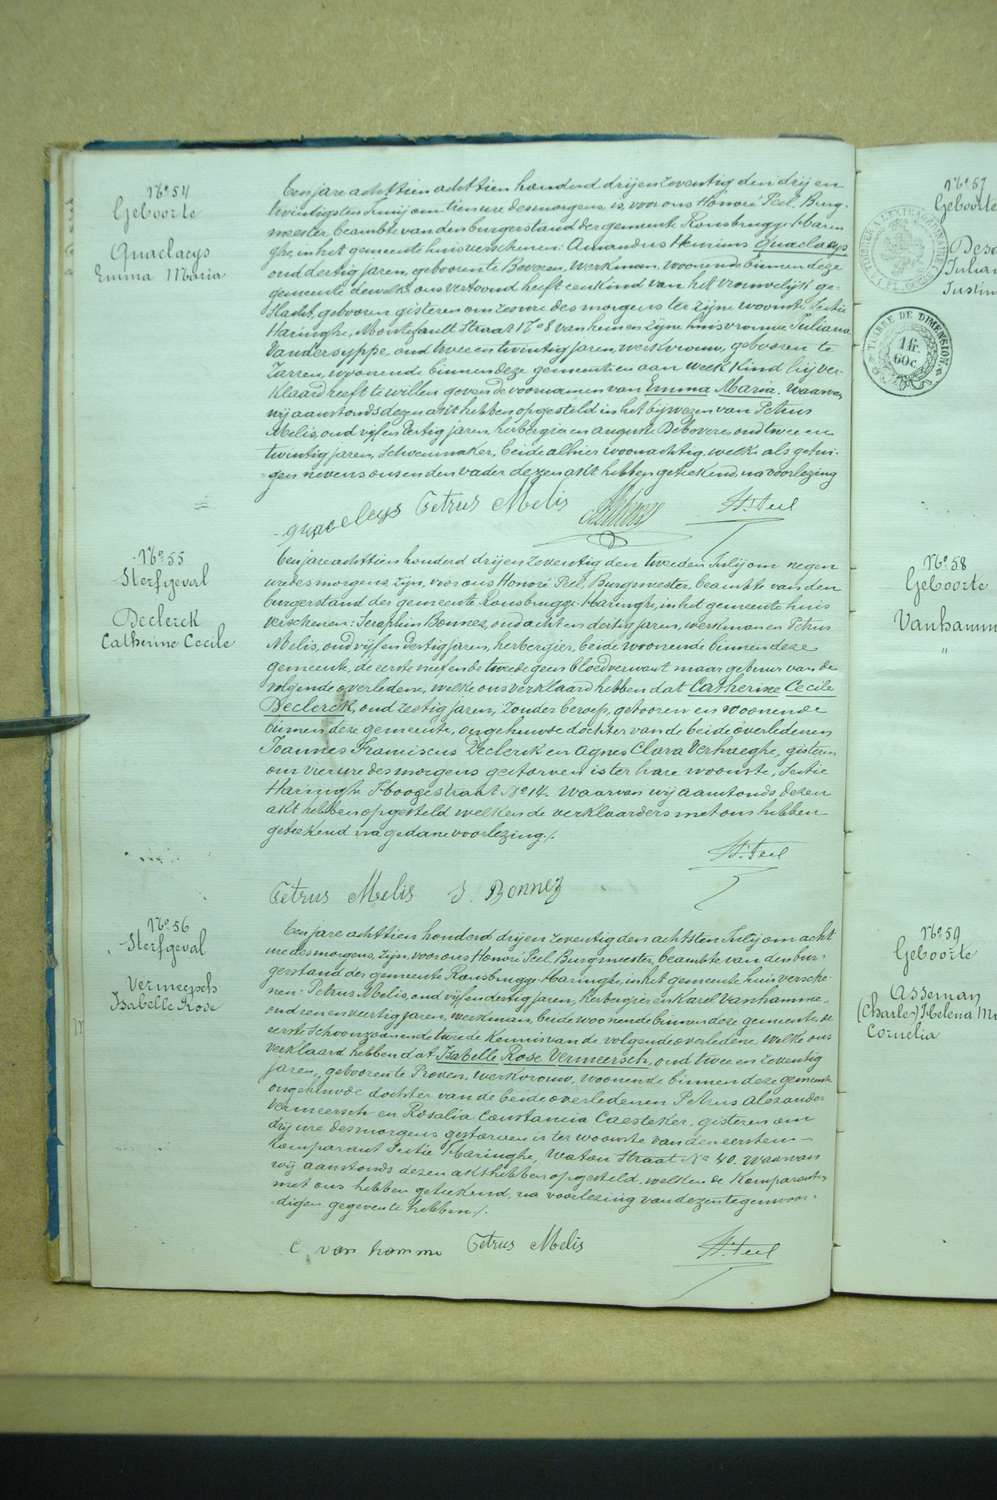 N° 54
Geboorte
Quaelaeys
Emma Maria
Ten jare achttien achttien honderd drij en zeventig den drij en
twintigsten Junij om tien ure des morgens is, voor ons Honoré Peel, Burg-
meester beambte van den burgerstand der gemeente Rousbrugge-Harin-
ghe, in het gemeente huis verschenen: Amandus Henricus Quaelaeys
oud dertig jaren, geboren te Beveren, werkman, woonende binnen deze
gemeente dewelke ons vertoond heeft een kind van het vrouwelijk ge-
slacht, geboren gisteren om zes ure des morgens ter zijne woonste Sectie
Haringhe, Straat N° 8 van hem en zijne huisvrouwe Juliana
Vandersyppe, oud twee en twintig jaren, werkvrouw, geboren te
Zarren, woonende binnen deze gemeente en aan welk kind hij ver-
klaard heeft te willen geven de voornamen van Emma Maria. Waarvan
wij aanstonds dezen akt hebben opgesteld in het bijwezen van Petrus
Melis, oud vijf en dertig jaren, herbergier en Auguste Debovere oud twee en
twintig jaren, schoenmaker, beide alhier woonachtig, welke als getui-
gen nevens ons en den vader dezen akt hebben geteekend, na voorlezing
Quaelaeys Petrus Melis H. Peel
N° 55
Sterfgeval
Declerck
Catherine Cecile
Ten jare achttien honderd drij en zeventig den tweeden Julij om negen
ure des morgens, zijn, voor ons Honoré Peel, Burgmeester, beambte van den
burgerstand der gemeente Rousbrugge-Haringhe, in het gemeente huis
verschenen: Seraphin Bonnez, oud acht en dertig jaren, werkman en Petrus
Melis, oud vijf en dertig jaren, herbergier, beide woonende binnen deze
gemeente, de eerste neef en de tweede geen bloedverwant maar gebuur van de
volgende overledene, welke ons verklaard hebben dat Catherine Cecile
Declerck, oud zestig jaren, zonder beroep, geboren en woonende
binnen deze gemeente, ongehuwde dochter van de beide overledenen
Joannes Franciscus Declerck en Agnes Clara Verhaeghe, gisteren
om vier ure des morgens gestorven is ter hare woonste, Sectie
Haringhe Hoogestraat N° 14. Waarvan wij aanstonds dezen
akt hebben opgesteld welken de verklaarders met ons hebben
geteekend na gedane voorlezing./.
H. Peel
Petrus Melis S. Bonnez
N° 56
Sterfgeval
Vermeersch
Isabelle Rose
Ten jare achttien honderd drij en zeventig den achtsten Julij om acht
ure des morgens, zijn, voor ons Honoré Peel, Burgmeester, beambte van den bur-
gerstand der gemeente Rousbrugge-Haringhe, in het gemeente huis versche-
nen: Petrus Melis, oud vijf en dertig jaren, herbergier en Karel Vanhamme,
oud en veertig jaren, werkman, beide woonende binnen deze gemeente de
eerste Schoonzoon en de tweede Kennis van de volgende overledene, welke ons
verklaard hebben dat Isabelle Rose Vermeersch, oud twee en zeventig
jaren, geboren te Proven, werkvrouw, woonende binnen deze gemeente
ongehuwde dochter van de beide overledenen Petrus Alexander
Vermeersch en Rosalia Constancia Caesteker, gisteren om
drij ure des morgens gestorven is ter woonste van den eersten
komparant Sectie Haringhe, Watou Straat N° 40. Waarvan
wij aanstonds dezen akt hebben opgesteld welken de komparanten
met ons hebben geteekend, na voorlezing van dezen tegenwoor-
digen gegeven te hebben./.
C. van hamme Petrus Melis H. Peel
N° 57
Geboorte
TIMBRE DE DIMENSION
1 fr.
60c.
N° 58
Geboorte
Vanhamm
"
N° 59
Geboorte
Asseman
(Charles) Helena
Cornelia